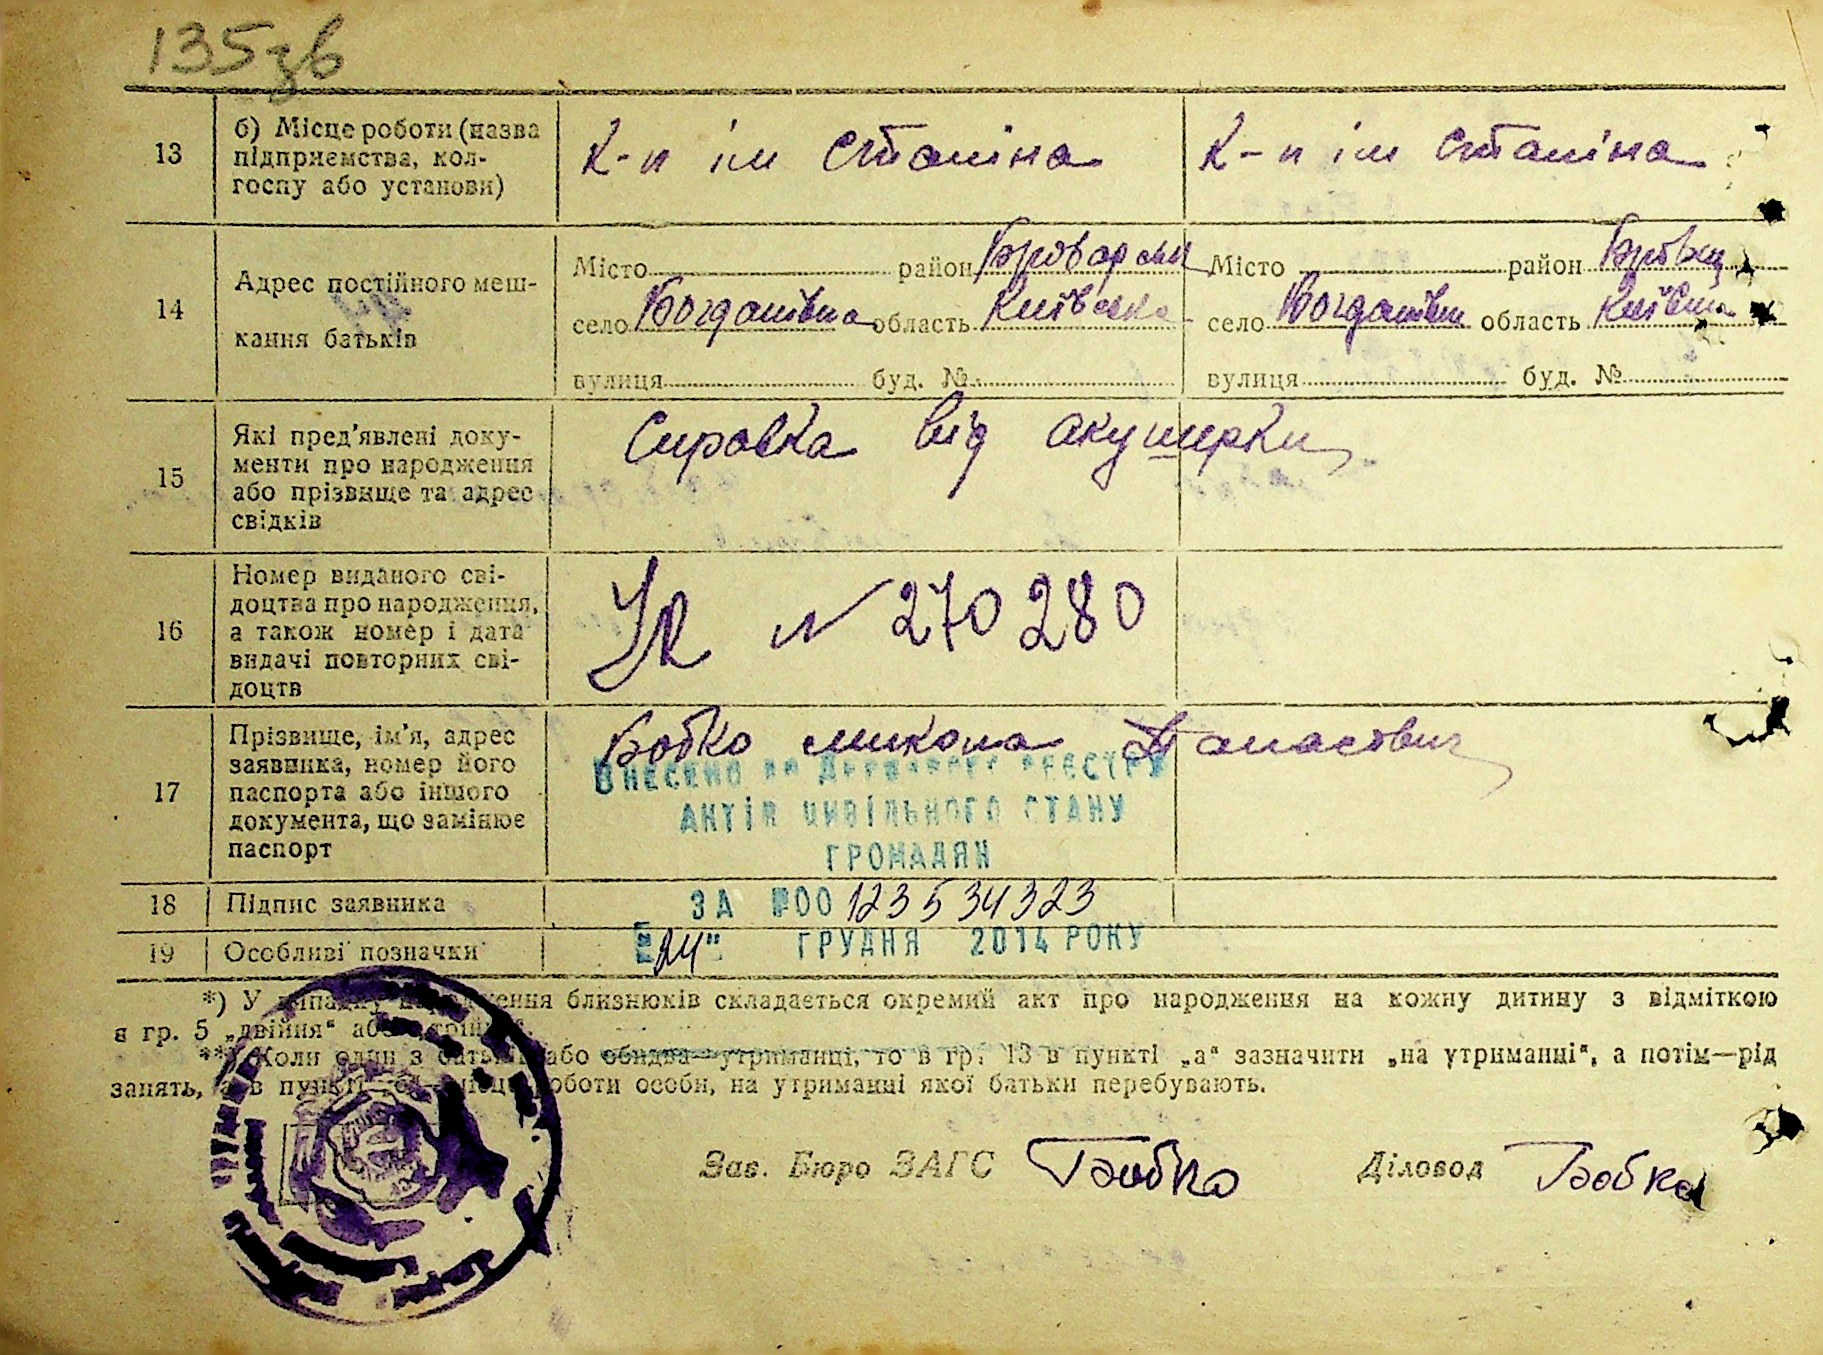 135зв
13
б) Місце роботи (назва
підприємства, кол-
госпу або установи)
К-п ім Сталіна
К-п ім Сталіна
14
Адрес постійного меш-
кання батьків
Місто район Броварськ
село Богданівка область Київська
вулиця буд. №
Місто район
село Богданівк область
вулиця буд. №
15
Які пред'явлені доку-
менти про народження
або прізвище та адрес
свідків
Справка від акушерки
16
Номер виданого сві-
доцтва про народження,
а також номер і дата
видачі повторних сві-
доцтв
№ 270280
17
Прізвище, ім'я, адрес
заявника, номер його
паспорта або іншого
документа, що замінює
паспорт
Бобко Микола Панасович
ВНЕСЕНО ДО ДЕРЖАВНОГО РЕЄСТРУ
АКТІВ ЦИВІЛЬНОГО СТАНУ
ГРОМАДЯН
18
Підпис заявника
ЗА №00123534323
19
Особливі позначки
"24" ГРУДНЯ 2014 РОКУ
*) У випадку народження близнюків складається окремий акт про народження на кожну дитину з відміткою
в гр. 5 „двійня“ або
**) Коли один з батьків або обидва—утриманці, то в гр. 13 в пункті „а“ зазначити „на утриманні“, а потім—рід
занять, а в пункті „б“—місце роботи особи, на утриманні якої батьки перебувають.
Зав. Бюро ЗАГС Бобко Діловод Бобко